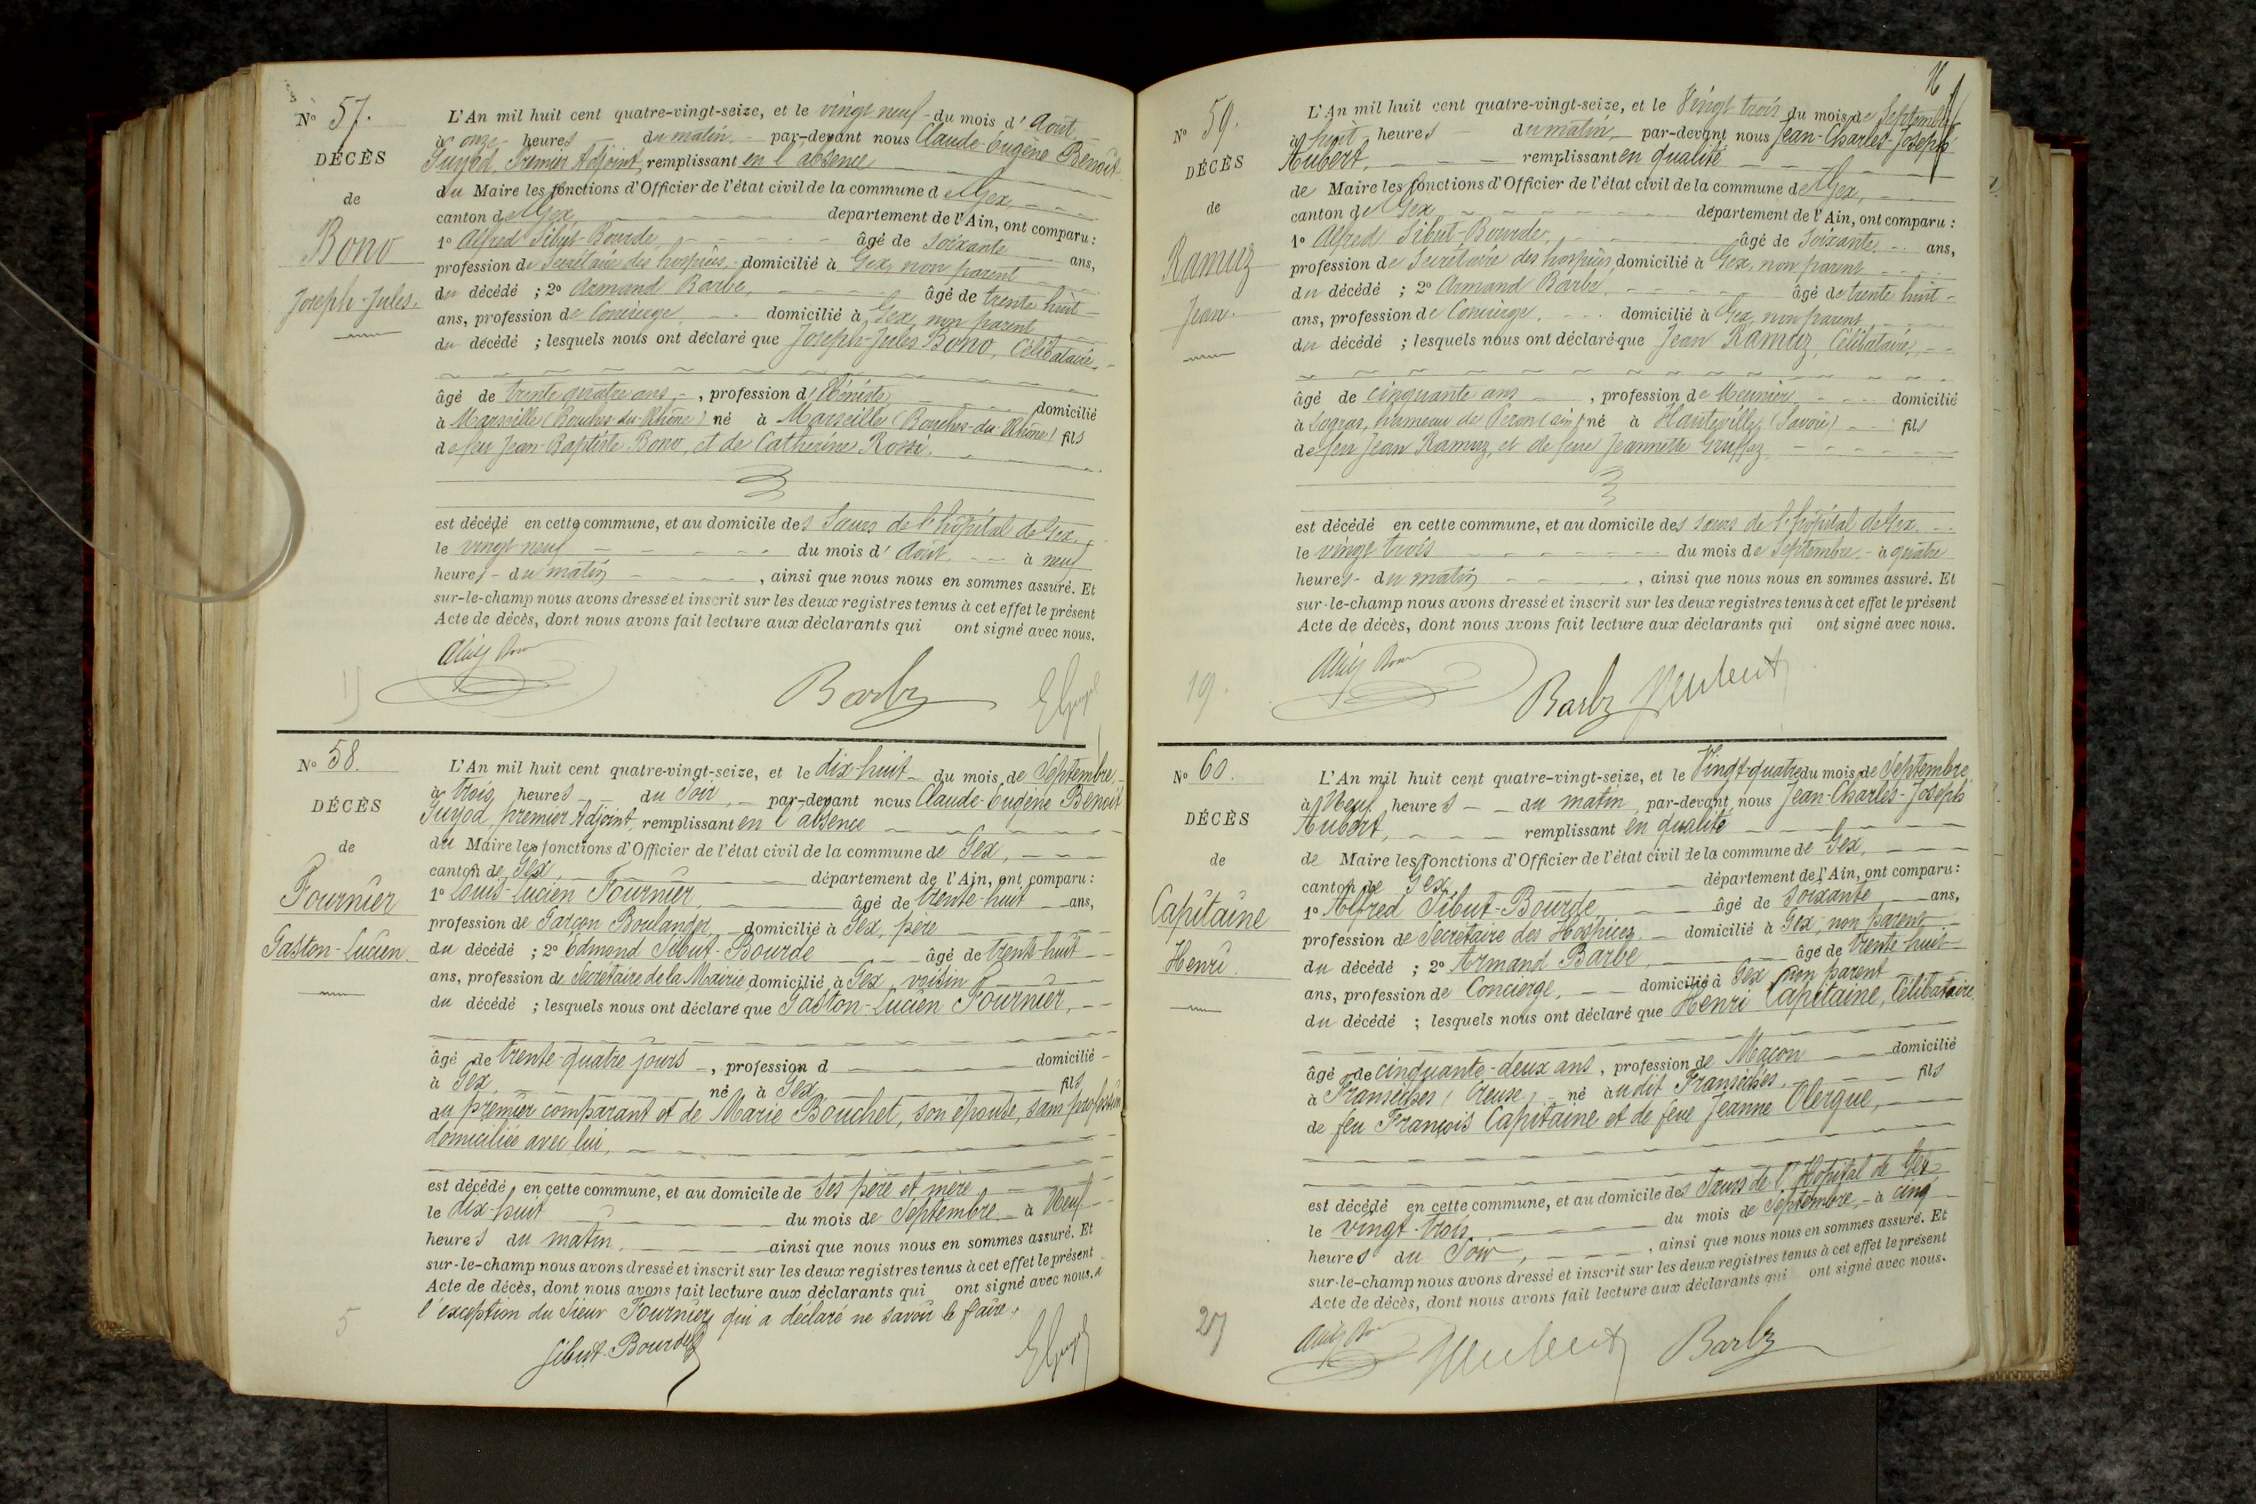 No 57.
DÉCÈS
de
Bono
Joseph-Jules.
L'An mil huit cent quatre-vingt-seize, et le vingt neuf du mois d'Août
à onze heures du matin par-devant nous Claude-Eugène Benoit
Guyod, Premier Adjoint, remplissant en l'absence
du Maire les fonctions d'Officier de l'état civil de la commune de Gex,
canton de Gex département de l'Ain, ont comparu :
1o Alfred Sibut-Bourde, âgé de soixante ans,
profession de Secrétaire des hospices, domicilié à Gex, non parent
du décédé ; 2o Armand Barbe, âgé de trente huit
ans, profession de Concierge, domicilié à Gex, non parent
du décédé ; lesquels nous ont déclaré que Joseph-Jules Bono, Célibataire,
âgé de trente quatre ans, profession d'Ebéniste, domicilié
à Marseille (Bouches-du-Rhône) né à Marseille (Bouches-du-Rhône) fils
de feu Jean-Baptiste Bono, et de Catherine Rossi,
est décédé en cette commune, et au domicile des Sœurs de l'hôpital de Gex,
le vingt neuf du mois d'Août à neuf
heures du matin, ainsi que nous nous en sommes assuré. Et
sur-le-champ nous avons dressé et inscrit sur les deux registres tenus à cet effet le présent
Acte de décès, dont nous avons fait lecture aux déclarants qui ont signé avec nous.
Barbe
No 58.
DÉCÈS
de
Fournier
Gaston-Lucien.
L'An mil huit cent quatre-vingt-seize, et le dix-huit du mois de Septembre
à trois heures du Soir, par-devant nous Claude-Eugène Benoit
Guyod, premier Adjoint, remplissant en l'absence
du Maire les fonctions d'Officier de l'état civil de la commune de Gex,
canton de Gex, département de l'Ain, ont comparu :
1o Louis-Lucien Fournier, âgé de trente-huit ans,
profession de Garçon Boulanger, domicilié à Gex, père
du décédé ; 2o Edmond Sibut-Bourde âgé de trente-huit
ans, profession de Secrétaire de la Mairie, domicilié à Gex, voisin
du décédé ; lesquels nous ont déclaré que Gaston-Lucien Fournier,
âgé de trente-quatre jours, profession d domicilié
à Gex, né à Gex, fils
du premier comparant et de Marie Bouchet, son épouse, sans profession
domiciliée avec lui,
est décédé en cette commune, et au domicile de ses père et mère
le dix-huit du mois de Septembre à Neuf
heures du matin, ainsi que nous nous en sommes assuré. Et
sur-le-champ nous avons dressé et inscrit sur les deux registres tenus à cet effet le présent
Acte de décès, dont nous avons fait lecture aux déclarants qui ont signé avec nous. à
l'exception du Sieur Fournier, qui a déclaré ne savoir le faire.
5
Sibut-Bourde
16
No 59.
DÉCÈS
de
Ramuz
Jean.
L'An mil huit cent quatre-vingt-seize, et le Vingt trois du mois de Septembre
à huit heures du matin par-devant nous Jean-Charles-Joseph
Aubert, remplissant en qualité
de Maire les fonctions d'Officier de l'état civil de la commune de Gex,
canton de Gex département de l'Ain, ont comparu :
1o Alfred Sibut-Bourde, âgé de soixante ans,
profession de Secrétaire des hospices, domicilié à Gex, non parent
du décédé ; 2o Armand Barbe, âgé de trente huit
ans, profession de Concierge, domicilié à Gex, non parent
du décédé ; lesquels nous ont déclaré que Jean Ramuz, Célibataire,
âgé de cinquante ans, profession de Meunier, domicilié
à Logras, hameau de Péron (ain) né à Hauteville (Savoie) fils
de feu Jean Ramuz, et de feue Jeannette Gruffaz
est décédé en cette commune, et au domicile des sœurs de l'hôpital de Gex
le vingt trois du mois de Septembre à quatre
heures du matin, ainsi que nous nous en sommes assuré. Et
sur-le-champ nous avons dressé et inscrit sur les deux registres tenus à cet effet le présent
Acte de décès, dont nous avons fait lecture aux déclarants qui ont signé avec nous.
19.
Barbe
No 60.
DÉCÈS
de
Capitaine
Henri.
L'An mil huit cent quatre-vingt-seize, et le Vingt-quatre du mois de Septembre
à Neuf heures du matin par-devant nous Jean-Charles-Joseph
Aubert, remplissant en qualité
de Maire les fonctions d'Officier de l'état civil de la commune de Gex,
canton de Gex département de l'Ain, ont comparu :
1o Alfred Sibut-Bourde âgé de soixante ans,
profession de Secrétaire des Hospices, domicilié à Gex, non parent
du décédé ; 2o Armand Barbe, âgé de trente-huit
ans, profession de Concierge, domicilié à Gex non parent
du décédé ; lesquels nous ont déclaré que Henri Capitaine, Célibataire
âgé de cinquante-deux ans, profession de Maçon domicilié
à Fransèches (Creuse), né audit Fransèches, fils
de feu François Capitaine et de feue Jeanne Clergue,
est décédé en cette commune, et au domicile des Sœurs de l'Hôpital de Gex
le vingt-trois du mois de Septembre à cinq
heures du Soir, ainsi que nous nous en sommes assuré. Et
sur-le-champ nous avons dressé et inscrit sur les deux registres tenus à cet effet le présent
Acte de décès, dont nous avons fait lecture aux déclarants qui ont signé avec nous.
27
Barbe